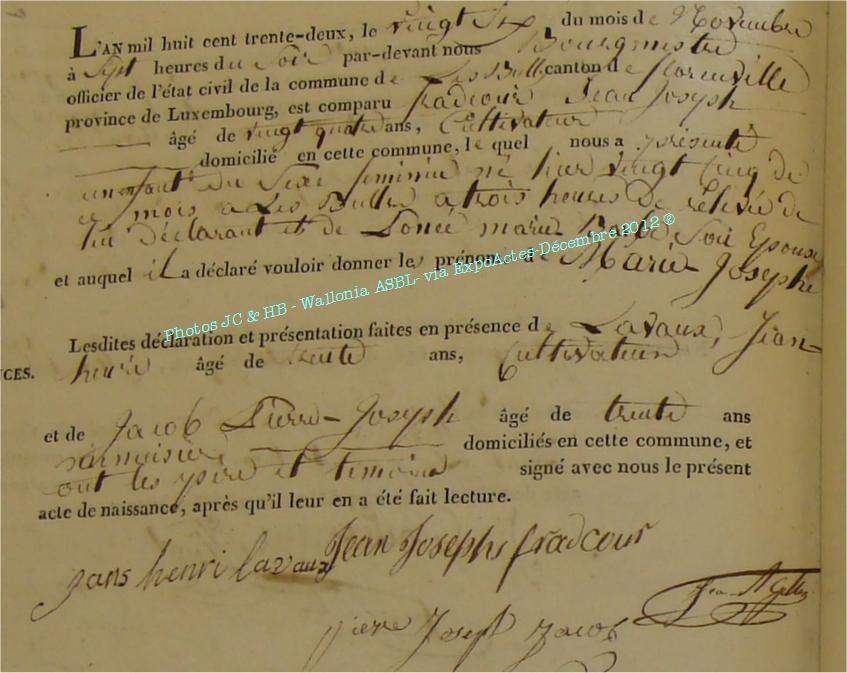 L'AN mil huit cent trente-deux, le vingt Six du mois de 9Novembre
à Sept heures du Soir par-devant nous Bourgmestre
officier de l'état civil de la commune de Les Bulles canton de florenville
province de Luxembourg, est comparu fradcour Jean Joseph
âgé de vingt quatre ans, Cultivateur
domicilié en cette commune, le quel nous a présenté
un enfant du Sexe feminin né hier vingt Cinq de
ce mois a Les Bulles a trois heures de relevée de
lui déclarant et de Poncé marie Son Epouse
et auquel il a déclaré vouloir donner les prénoms de Marie Josephe
Photos JC & HB - Wallonia ASBL- via ExpoActes-Décembre 2012 ®
Lesdites déclaration et présentation faites en présence de Lavaux, Jean-
NCES. henri âgé de trente ans, Cultivateur
et de Jacob Pierre-Joseph âgé de trente ans
domiciliés en cette commune, et
ont les père et temoins signé avec nous le présent
acte de naissance, après qu'il leur en a été fait lecture.
Jean Josephs fradcour
jans henri lavaux
pierre Joseph Jacob